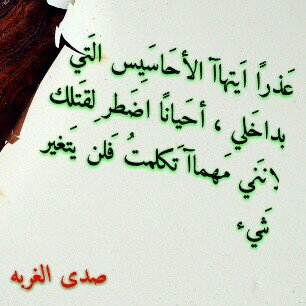 عَذراً اَيتهاآ الأحَاسَيِس التَي
بداخَلي ، أحَيانًا اضَطر لقَتلك
لإننَي مَهماآ تَكلمتُ فَلن يَتغير
شَيء
صدى الغربه